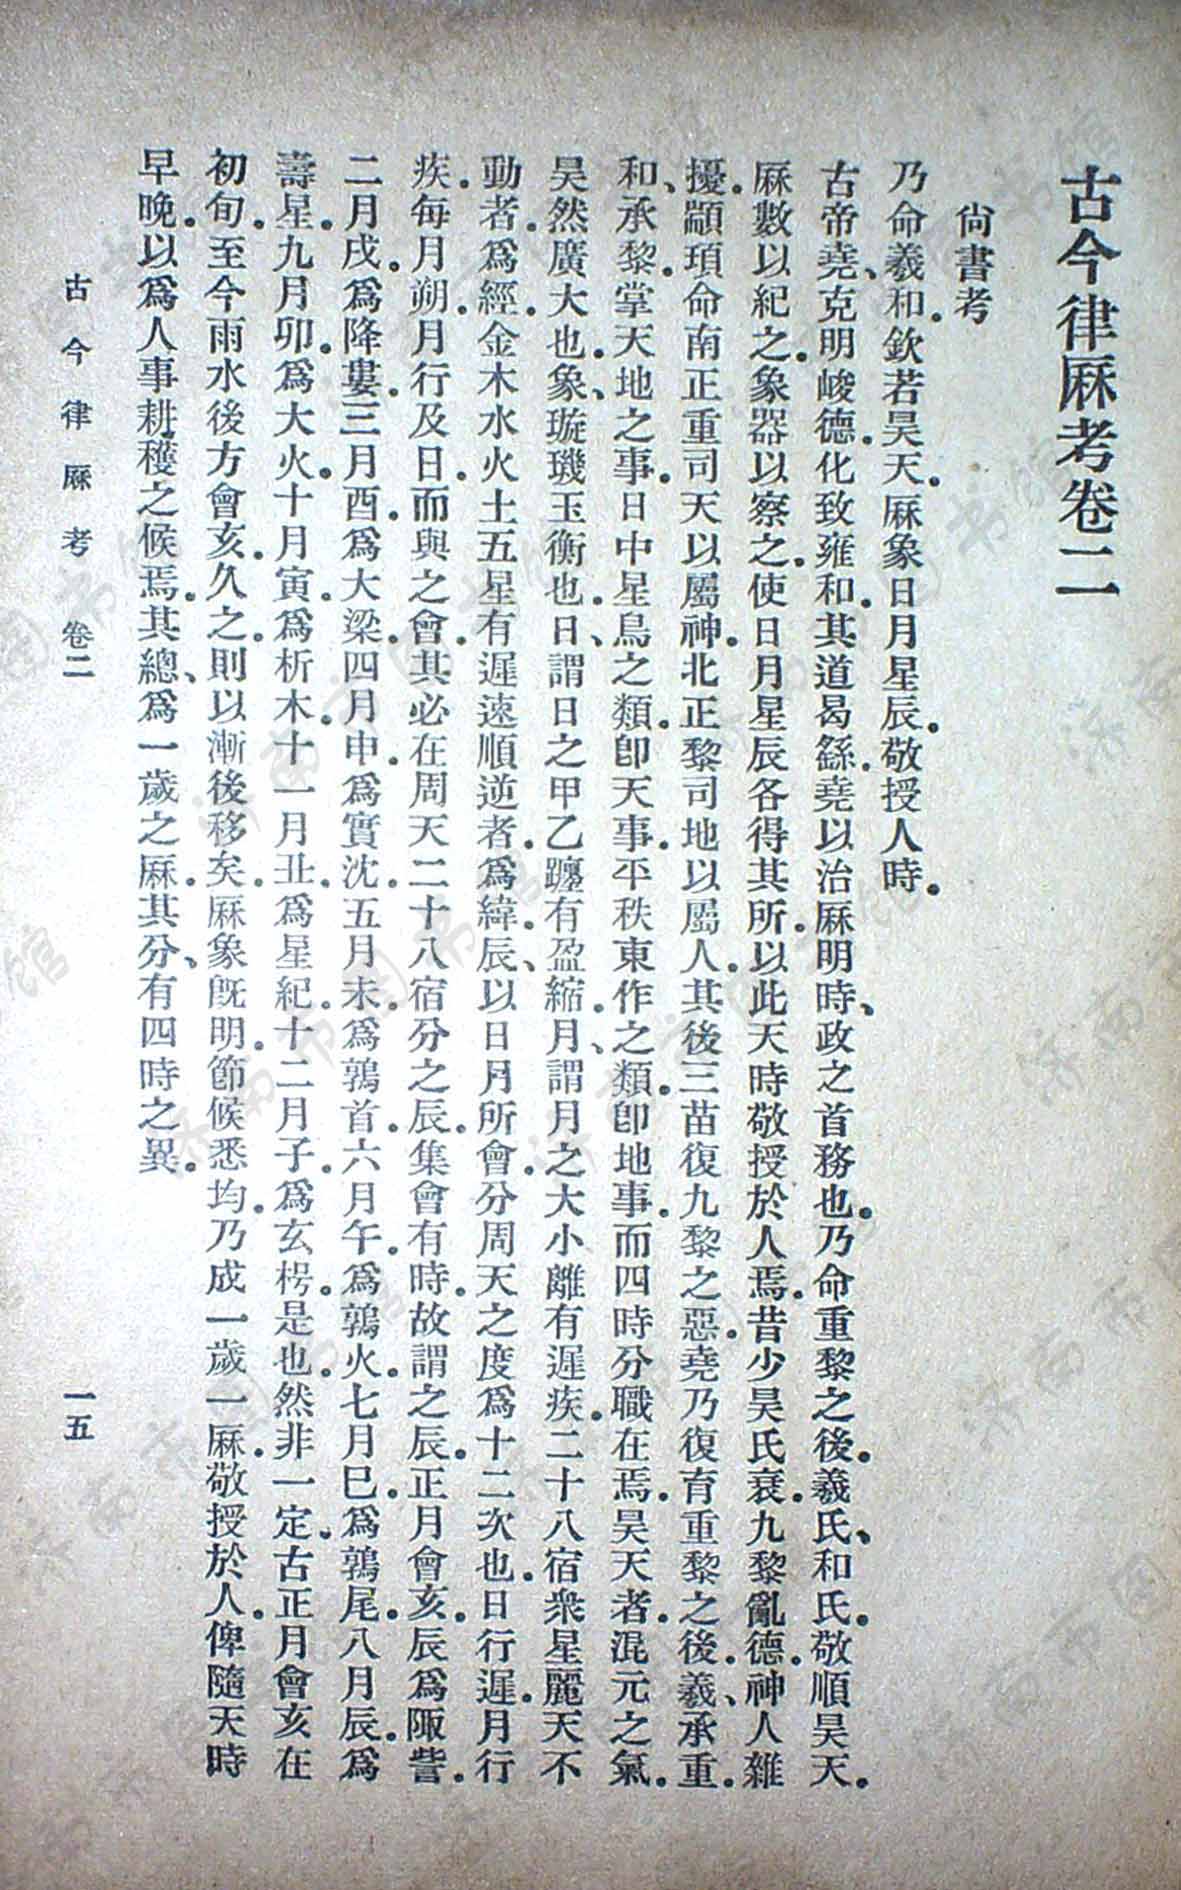 古今律厤考卷二
尙書考
乃命羲和。欽若昊天。厤象日月星辰。敬授人時。
古帝堯、克明峻德。化致雍和。其道曷繇。堯以治厤明時、政之首務也。乃命重黎之後。羲氏、和氏。敬順昊天。
厤數以紀之。象器以察之。使日月星辰各得其所。以此天時敬授於人焉。昔少昊氏衰。九黎亂德。神人雜
擾。顓頊命南正重司天以屬神。北正黎司地以屬人。其後三苗復九黎之惡。堯乃復育重黎之後。羲、承重。
和、承黎。掌天地之事。日中星鳥之類。卽天事。平秩東作之類。卽地事。而四時分職在焉。昊天者。混元之氣。
昊然廣大也。象、璇璣玉衡也。日、謂日之甲乙躔有盈縮。月、謂月之大小離有遲疾。二十八宿衆星麗天不
動者。爲經。金木水火土五星有遲速順逆者。爲緯。辰、以日月所會。分周天之度爲十二次也。日行遲。月行
疾。每月朔。月行及日。而與之會。其必在周天二十八宿分之辰。集會有時。故謂之辰。正月會亥。辰爲陬訾。
二月戌。爲降婁。三月酉。爲大梁。四月申。爲實沈。五月未。爲鶉首。六月午。爲鶉火。七月巳。爲鶉尾。八月辰。爲
壽星。九月卯。爲大火。十月寅。爲析木。十一月丑。爲星紀。十二月子。爲玄枵。是也。然非一定。古正月會亥在
初旬。至今雨水後方會亥。久之。則以漸後移矣。厤象旣明。節候悉均。乃成一歲一厤。敬授於人。俾隨天時
早晚。以爲人事耕穫之候焉。其總、爲一歲之厤。其分、有四時之異。
古今律厤考 卷二
一五